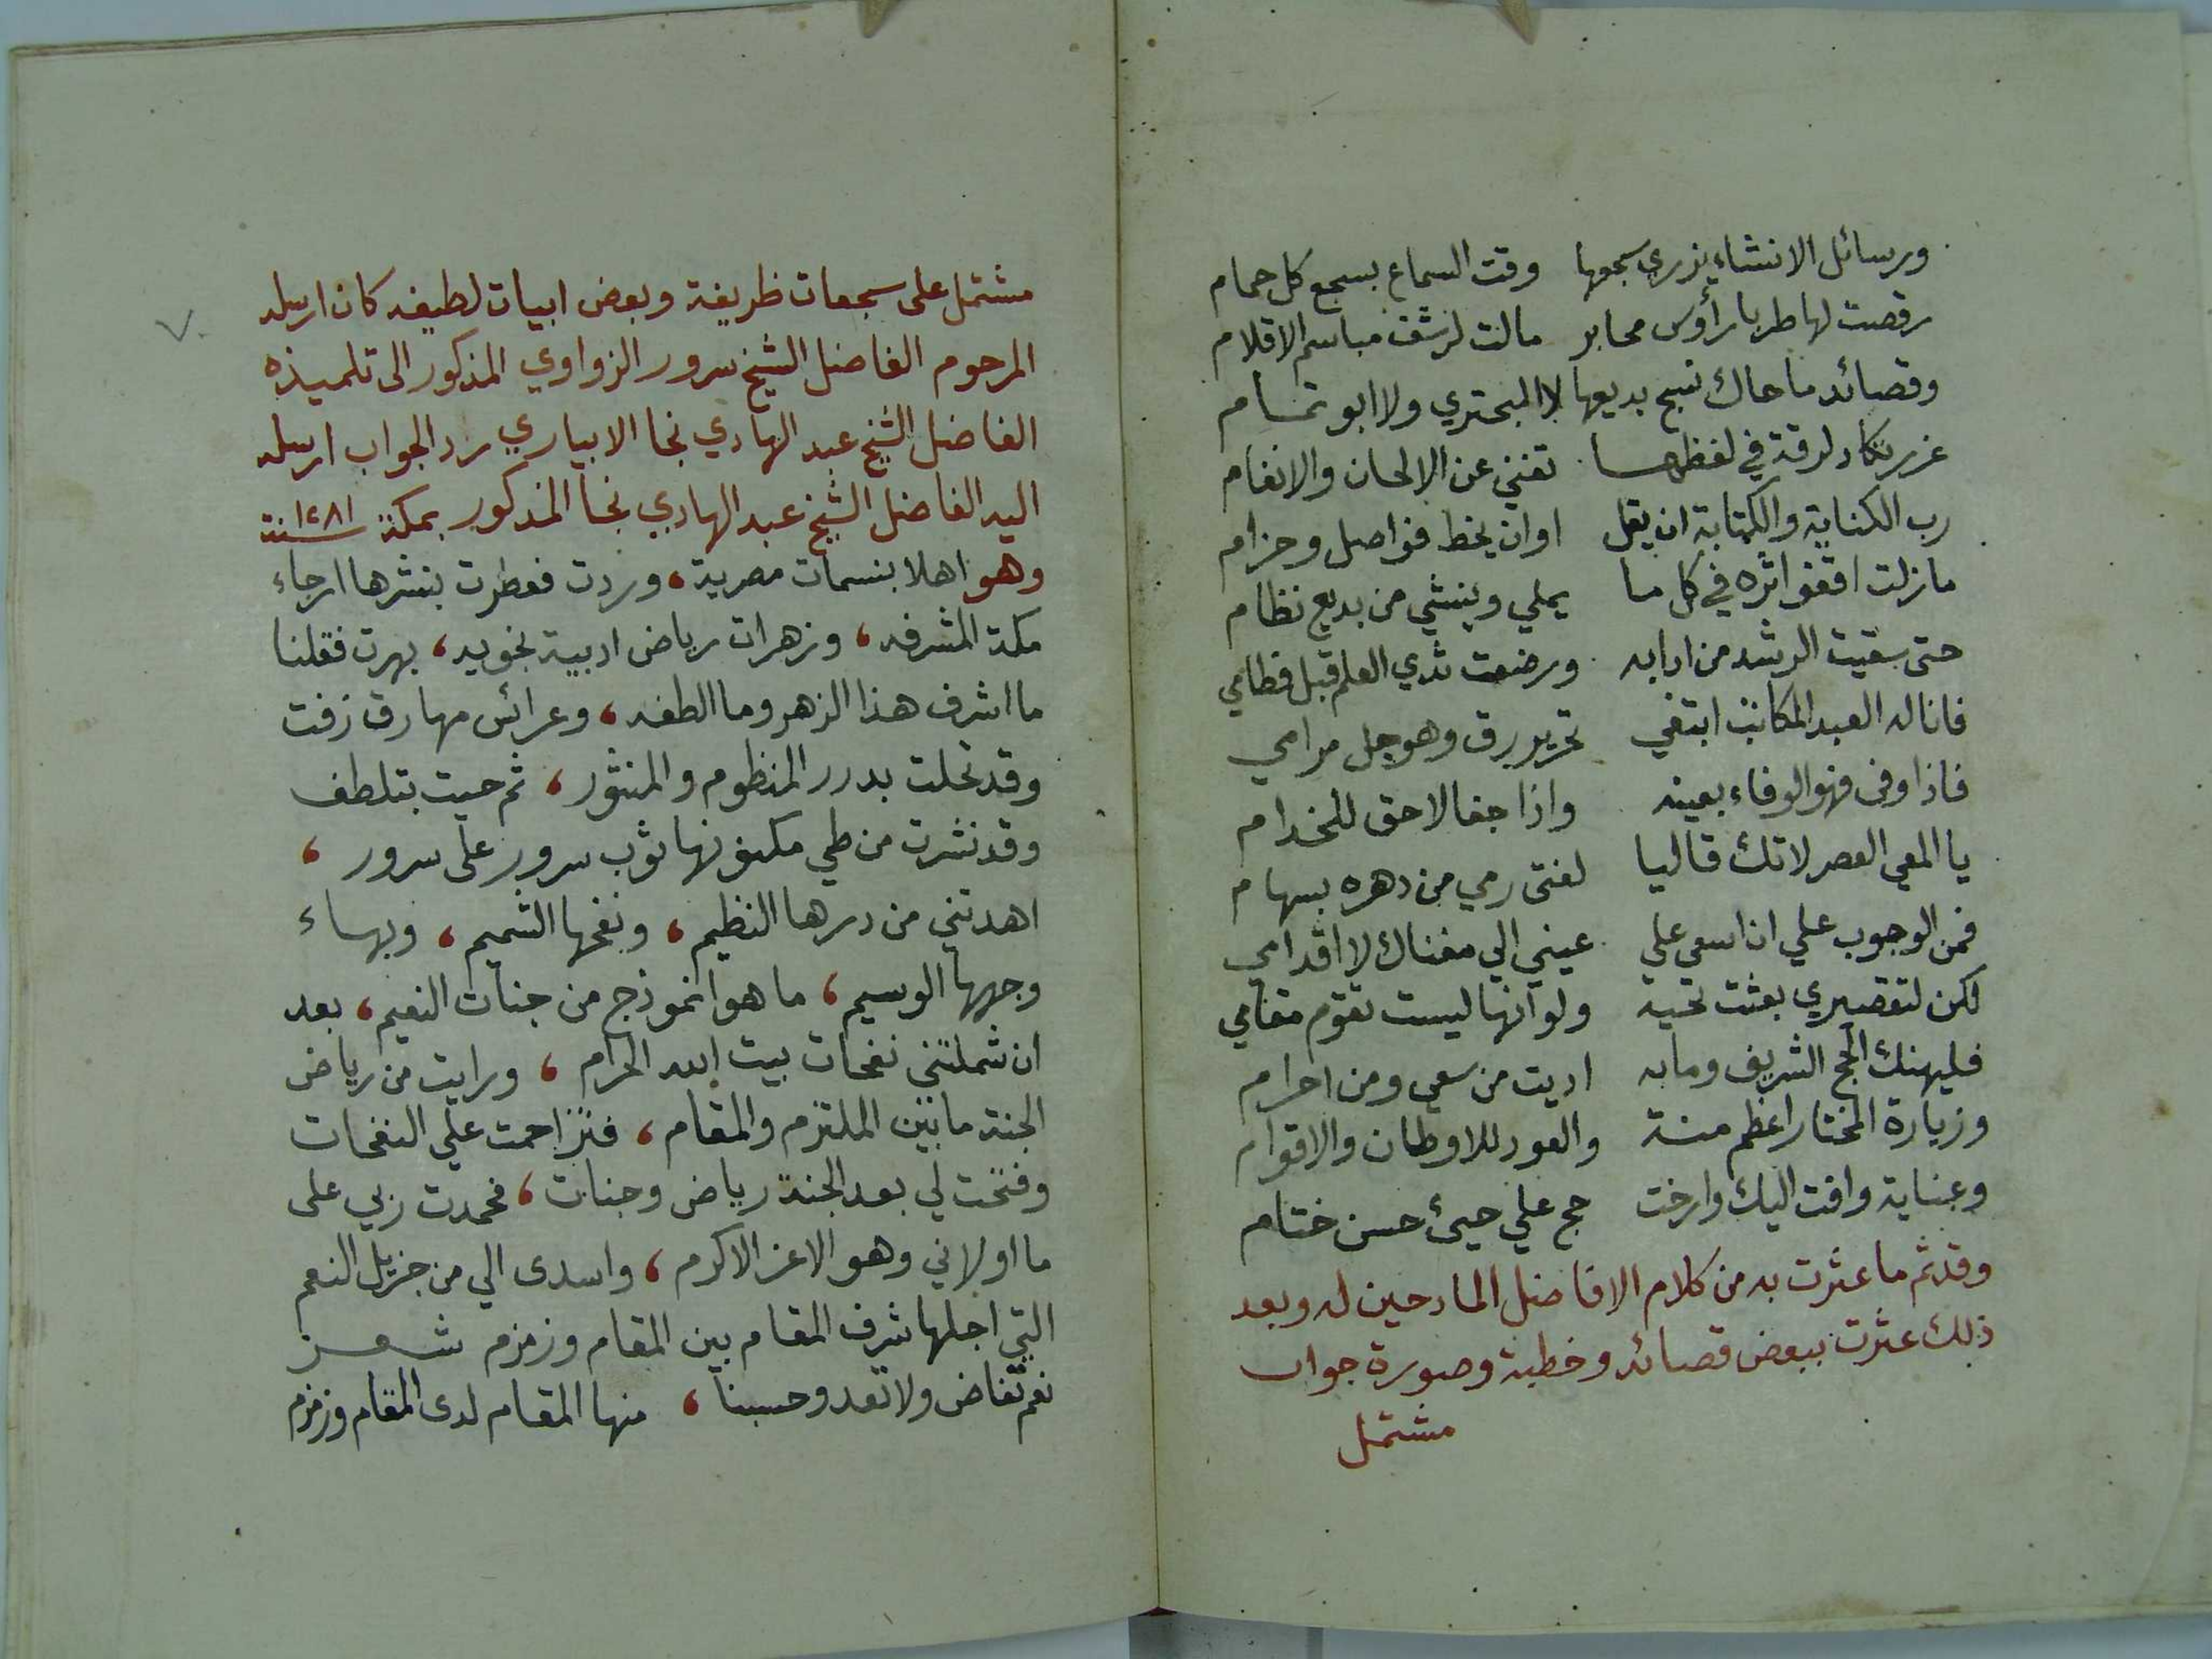 ورسائل الانشاء يزري سجعها وقت السماع بسجع كل حمام
رقصت لها طربا رأوس محابر مالت لرشف مباسم الاقلام
وقصائد ما حاك نسج بديعها لا البحتري ولا ابو تمام
غرر تكاد لرقة في لفظها تغني عن الالحان والانغام
رب الكناية والكتابة ان يقل او ان يخط فواصل وحزام
ما زلت اقفو اثره في كل ما يملي وينشي من بديع نظام
حتى سقيت الرشد من ادابه ورضعت ثدي العلم قبل فطامي
فانا له العبد المكاتب ابتغي تحرير رق وهو جل مرامي
فاذا وفى فهو الوفاء بعينه واذا جفا لا حق للخدام
يا المعي العصر لا تك قاليا لفتى رمي من دهره بسهام
فمن الوجوب علي ان اسعى على عيني الي مغناك لا اقدامي
لكن لتقصيري بعثت تحية ولو انها ليست تقوم مقامي
فليهنك الحج الشريف وما به اديت من سعي ومن احرام
وزيارة المختار اعظم منة والعود للاوطان والاقوام
وعناية وافت اليك وارخت حج علي حيئ حسن ختام
وقد تم ما عثرت به من كلام الافاضل المادحين له وبعد
ذلك عثرت ببعض قصائد وخطبة وصورة جواب
مشتمل
مشتمل على سجعات ظريفة وبعض ابيات لطيفه كان ارسله
المرحوم الفاضل الشيخ سرور الزواوي المذكور الى تلميذه
الفاضل الشيخ عبد الهادي نجا الابياري رد الجواب ارسله
اليه الفاضل الشيخ عبد الهادي نجا المذكور بمكة سنة ١٢٨١
وهو اهلا بنسمات مصرية، وردت فعطرت بنشرها ارجاء
مكة المشرفه، وزهرات رياض ادبية نجويه، بهرت فقلنا
ما اشرف هذا الزهر وما الطفه، وعرائس مهارق زفت
وقد تحلت بدرر المنظوم والمنثور، ثم حيت بتلطف
وقد نشرت من طي مكنونها ثوب سرور على سرور،
اهدتني من درها النظيم، ونفحها الشميم، وبهاء
وجهها الوسيم، ما هو انموذج من جنات النعيم، بعد
ان شملتني نفحات بيت الله الحرام، ورايت من رياض
الجنة ما بين الملتزم والمقام، فتزاحمت علي النفحات
وفتحت لي بعد الجنة رياض وجنات، فحمدت ربي على
ما اولاني وهو الاعز الاكرم، واسدى الي من جزيل النعم
التي اجلها شرف المقام بين المقام وزمزم شعر
نعم تفاض ولا تعد وحسبنا، منها المقام لدى المقام وزمزم